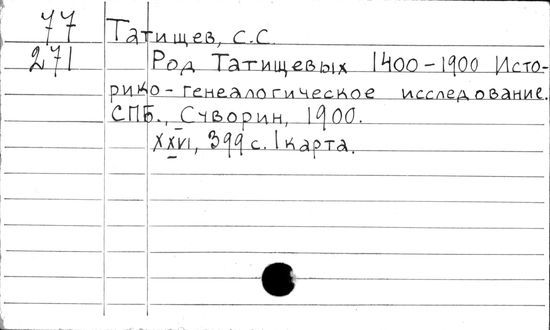 77 Татищев, С.С.
271 Род Татищевых 1400-1900 Исто-
рико-генеалогическое исследование.
СПБ., Суворин, 1900.
XXVI, 399 с. 1 карта.